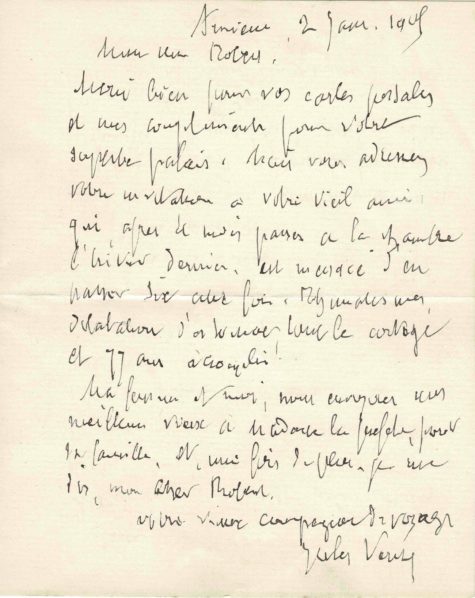 Amiens 2 Janv. 1905
Mon cher Robert,
Merci bien pour vos cartes postales
et mes compliments pour votre
superbe palais. Mais vous adressez
votre invitation à votre vieil ami,
qui, après 4 mois passés à la chambre
l'hiver dernier, est menacé d'en
passer six cette fois. Rhumatismes,
dilatation d'estomac, tout le cortège
et 77 ans accomplis!
Ma femme et moi, nous envoyons nos
meilleurs vœux à Madame
sa famille, et, une fois de plus, je me
dis, mon cher Robert,
votre vieux compagnon de voyage
Jules Verne